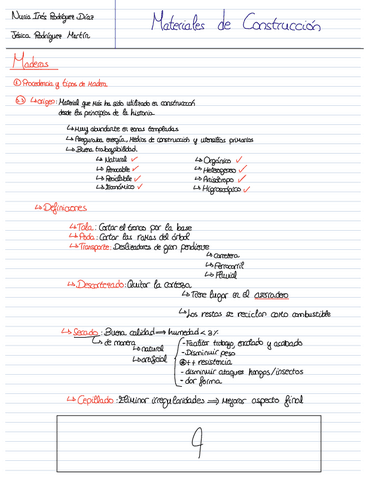 Nuria Inés Rodríguez Díaz
Jésica Rodríguez Martín
Materiales de Construcción
Maderas
① Procedencia y tipos de madera
1.1 ↳ origen: Material que más ha sido utilizado en construcción
desde los principios de la historia.
↳ Muy abundante en zonas templadas
↳ Aseguraba energía, medios de construcción y utensilios primarios
↳ Buena trabajabilidad
↳ Natural ✓ ↳ Orgánico ✓
↳ Renovable ✓ ↳ Heterogéneo ✓
↳ Reciclable ✓ ↳ Anisótropo ✓
↳ Económico ✓ ↳ Higroscópico ✓
↳ Definiciones
↳ Tala: Cortar el tronco por la base
↳ Poda: Cortar las ramas del árbol
↳ Transporte: Deslizadores de gran pendiente
↳ Carretera
↳ Ferrocarril
↳ Fluvial
↳ Descortezado: Quitar la corteza
↳ Tiene lugar en el aserradero
↳ Los restos se reciclan como combustible
↳ Secado: Buena calidad ⟹ humedad < 3%
↳ de manera
↳ natural
↳ artificial
- Facilitar trabajo, encolado y acabado
- Disminuir peso
++ resistencia
- disminuir ataques hongos/insectos
- dar forma
↳ Cepillado: Eliminar irregularidades ⟹ Mejorar aspecto final